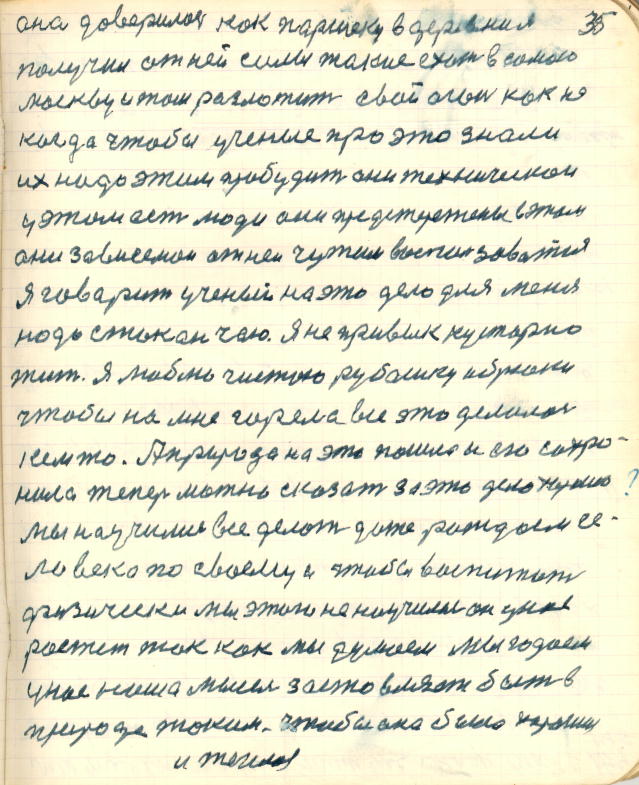 35
она доверилас как паршеку в деревния
получил от ней силы такие ехат в самою
москву и там разложит свой огон как не
когда чтобы учение про это знали
их надо этим пробудит они технической
у этом аст люди они предстережены в этом
они зависемои от неи чужим воспользоватся
Я говарит ученый на это дело для меня
надо стокан чаю. Я не привык кустарно
жит. Я люблю чистою рубашку и брюки
чтобы на мне горела все это делалос
кемто. А природа на это пошла и его сохро-
нила тепер можно сказат за это дело нужно ?
мы научилис все делат даже рождаем че-
ловека по своему а чтобы воспитат
физически мы этого не научилис он у нас
растет так как мы думаем мы гадаем
у нас наша мысл заставляет быт в
природе таким. чтобы она была хороши
и жилос